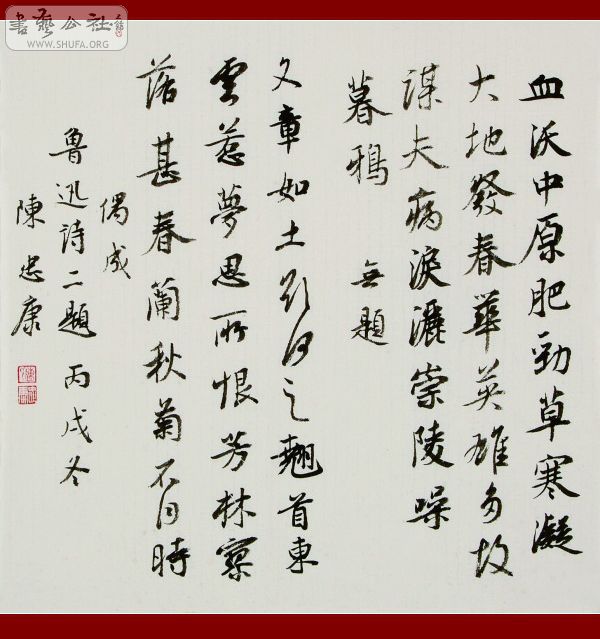 書藝公社
WWW.SHUFA.ORG
血沃中原肥勁草寒凝
大地發春華英雄多故
謀夫病淚灑崇陵噪
暮鴉 無題
文章如土欲何之翹首東
雲惹夢思所恨芳林寥
落甚春蘭秋菊不同時
偶成
魯迅詩二題 丙戌冬
陳忠康